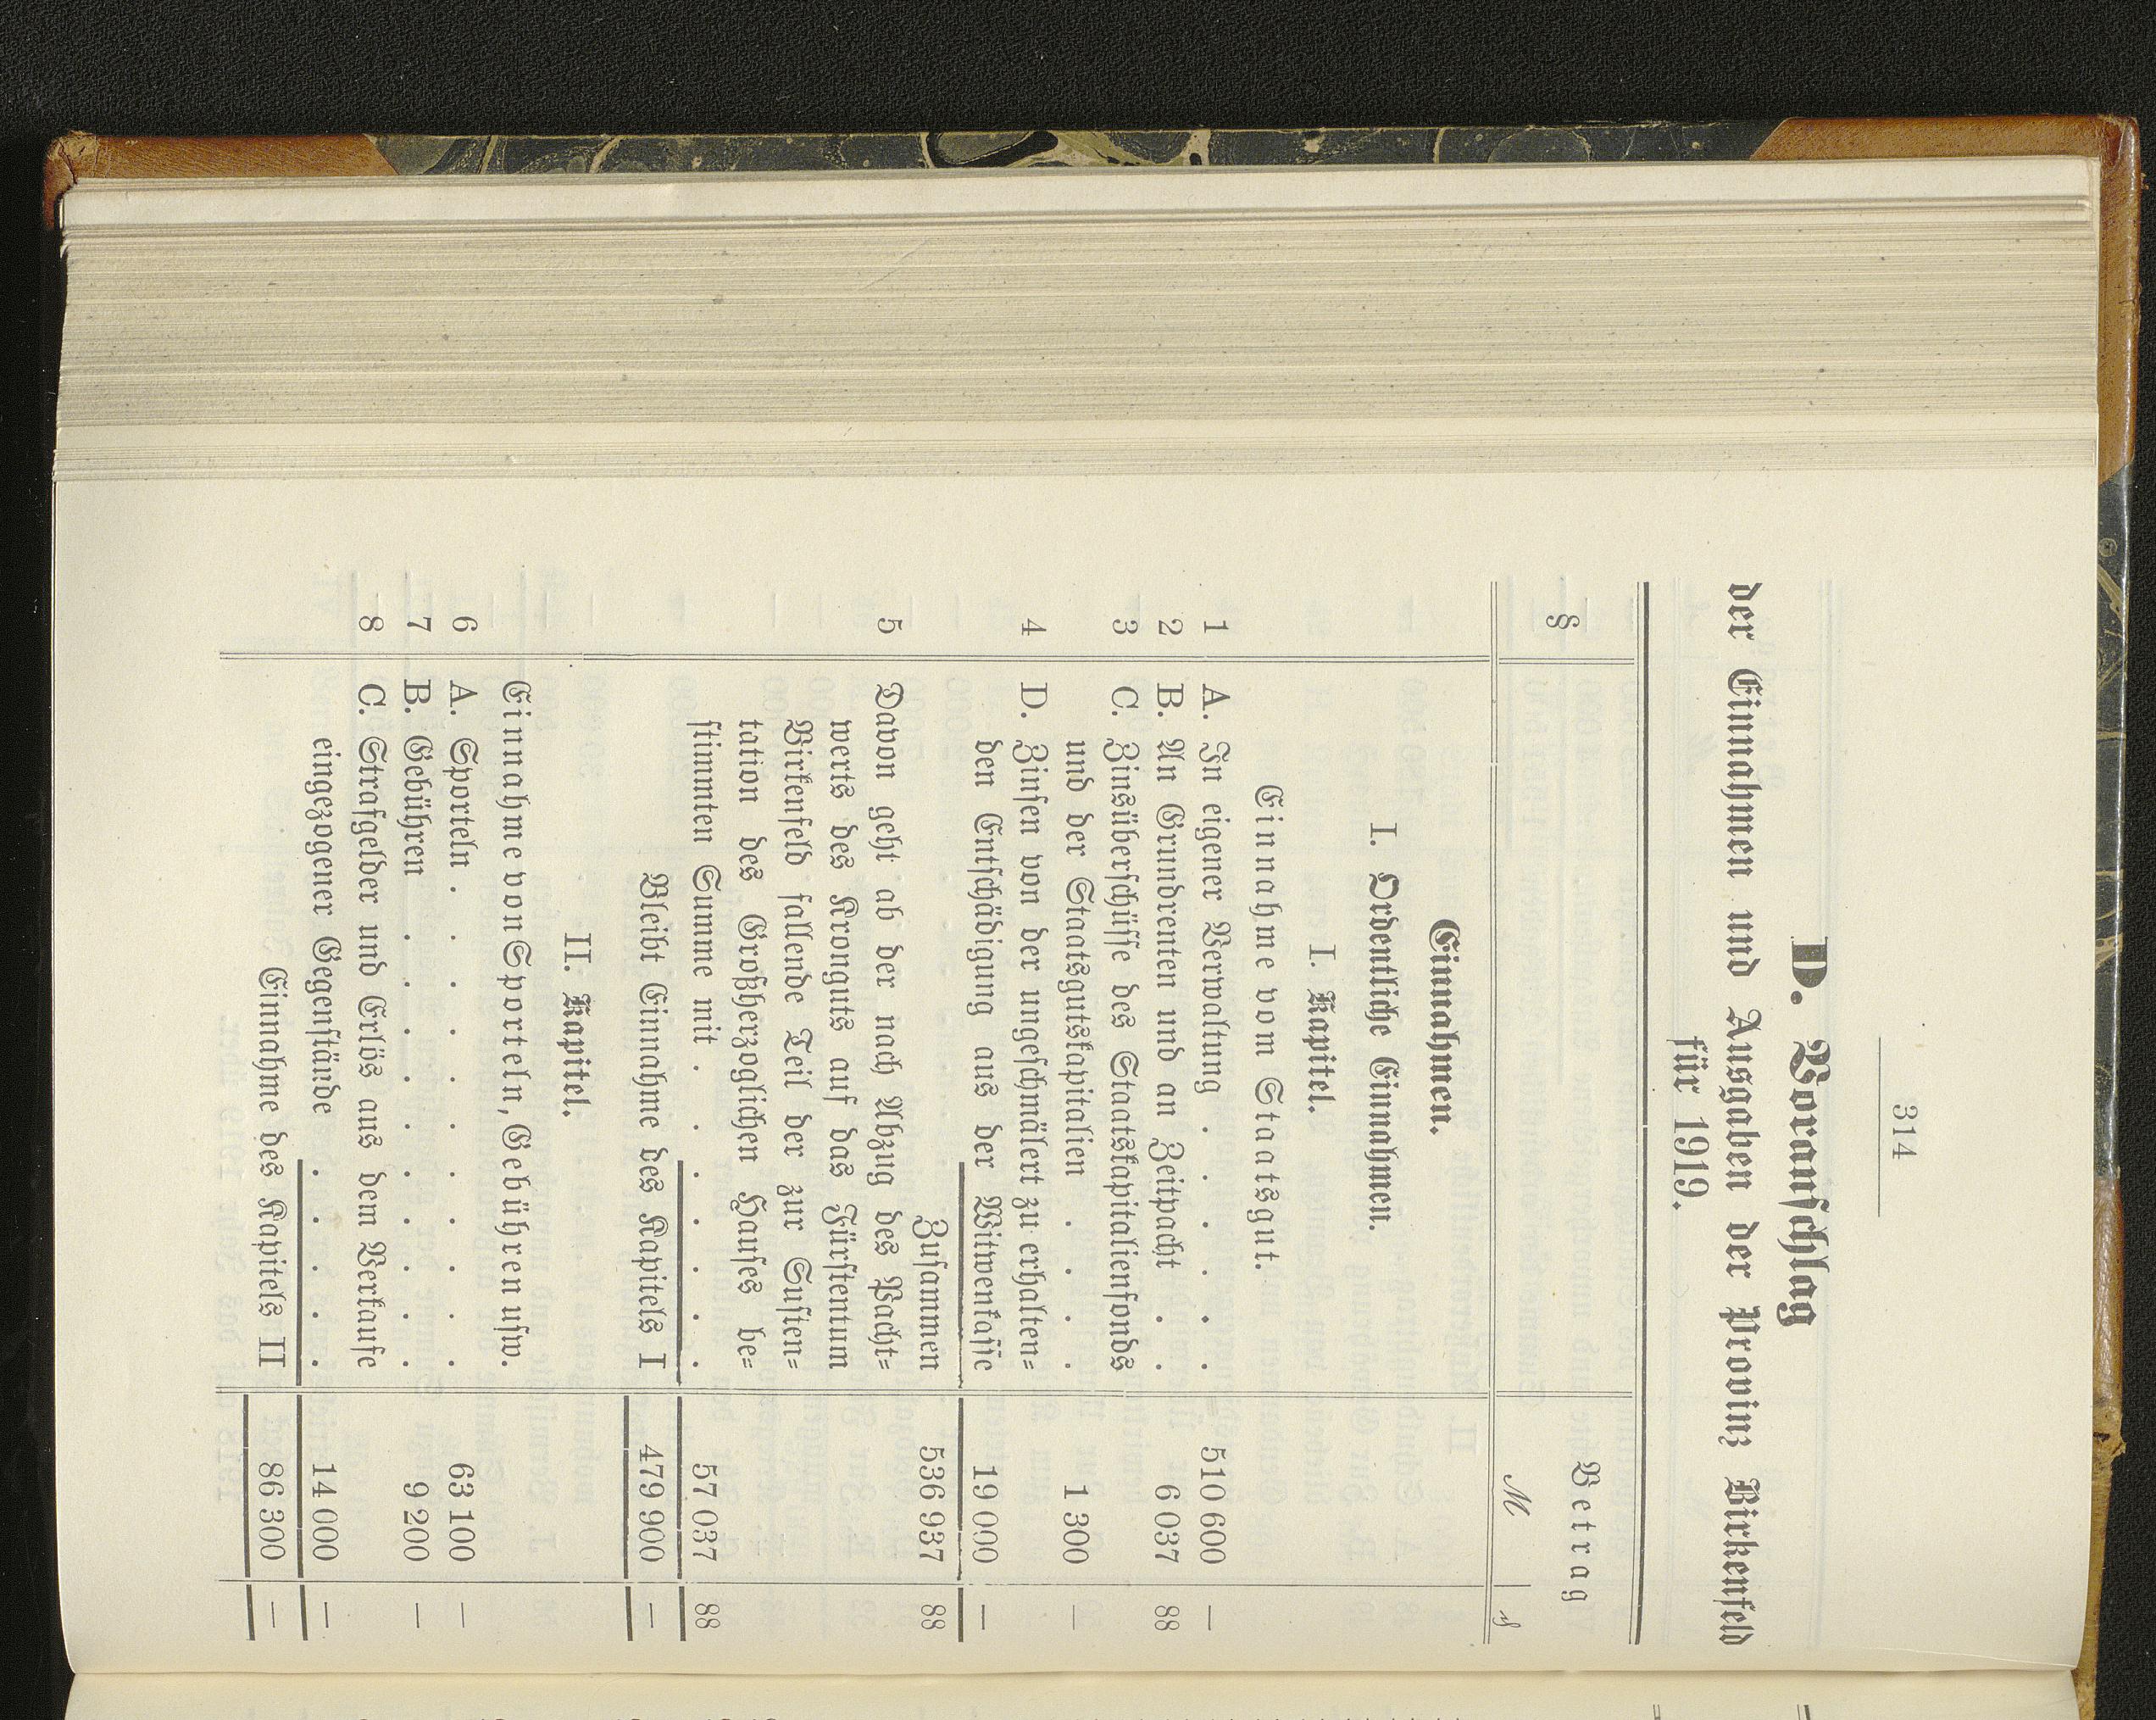 314
D. Voranschlag
der Einnahmen und Ausgaben der Provinz Birkenfeld
für 1919.
§ Betrag
ℳ ₰
Einnahmen.
I. Ordentliche Einnahmen.
I. Kapitel.
Einnahme vom Staatsgut.
1 A. In eigener Verwaltung . . . . . . 510 600 —
2 B. An Grundrenten und an Zeitpacht . . . 6 037 88
3 C. Zinsüberschüsse des Staatskapitalienfonds
und der Staatsgutskapitalien . . . . 1 300 —
4 D. Zinsen von der ungeschmälert zu erhalten=
den Entschädigung aus der Witwenkasse 19 000 —
Zusammen 536 937 88
5 Davon geht ab der nach Abzug des Pacht=
werts des Kronguts auf das Fürstentum
Birkenfeld fallende Teil der zur Susten=
tation des Großherzoglichen Hauses be=
stimmten Summe mit . . . . . . . 57 037 88
Bleibt Einnahme des Kapitels I 479 900 —
II. Kapitel.
Einnahme von Sporteln, Gebühren usw.
6 A. Sporteln . . . . . . . . . . . 63 100 —
7 B. Gebühren . . . . . . . . . . 9 200 —
8 C. Strafgelder und Erlös aus dem Verkaufe
eingezogener Gegenstände . . . . . 14 000 —
Einnahme des Kapitels II 86 300 —